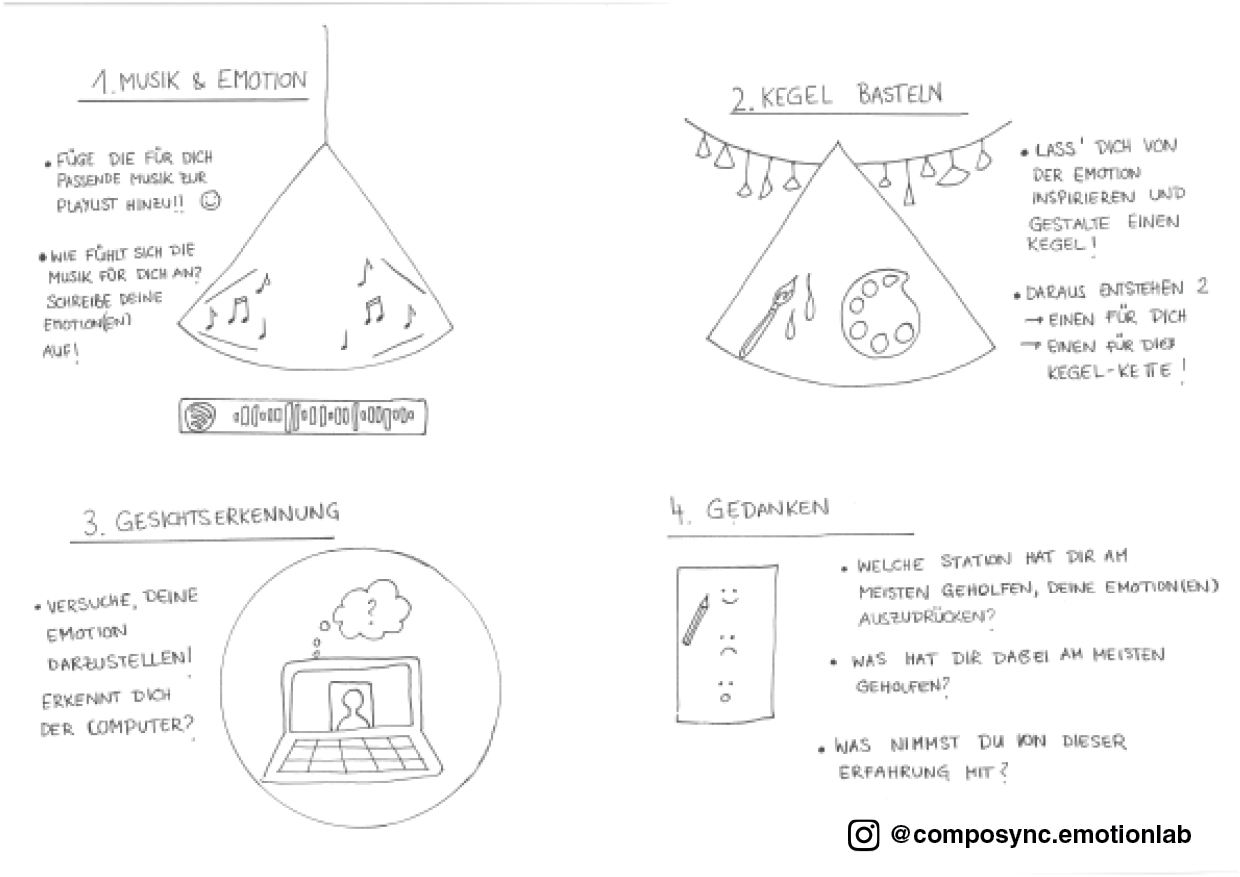 1. MUSIK & EMOTION
• FÜGE DIE FÜR DICH
PASSENDE MUSIK ZUR
PLAYLIST HINZU!! ☺
• WIE FÜHLT SICH DIE
MUSIK FÜR DICH AN?
SCHREIBE DEINE
EMOTION(EN)
AUF!
2. KEGEL BASTELN
• LASS' DICH VON
DER EMOTION
INSPIRIEREN UND
GESTALTE EINEN
KEGEL!
• DARAUS ENTSTEHEN 2
→ EINEN FÜR DICH
→ EINEN FÜR DIE
KEGEL-KETTE!
3. GESICHTSERKENNUNG
• VERSUCHE, DEINE
EMOTION
DARZUSTELLEN!
ERKENNT DICH
DER COMPUTER?
?
4. GEDANKEN
• WELCHE STATION HAT DIR AM
MEISTEN GEHOLFEN, DEINE EMOTION(EN)
AUSZUDRÜCKEN?
• WAS HAT DIR DABEI AM MEISTEN
GEHOLFEN?
• WAS NIMMST DU VON DIESER
ERFAHRUNG MIT?
@composync.emotionlab